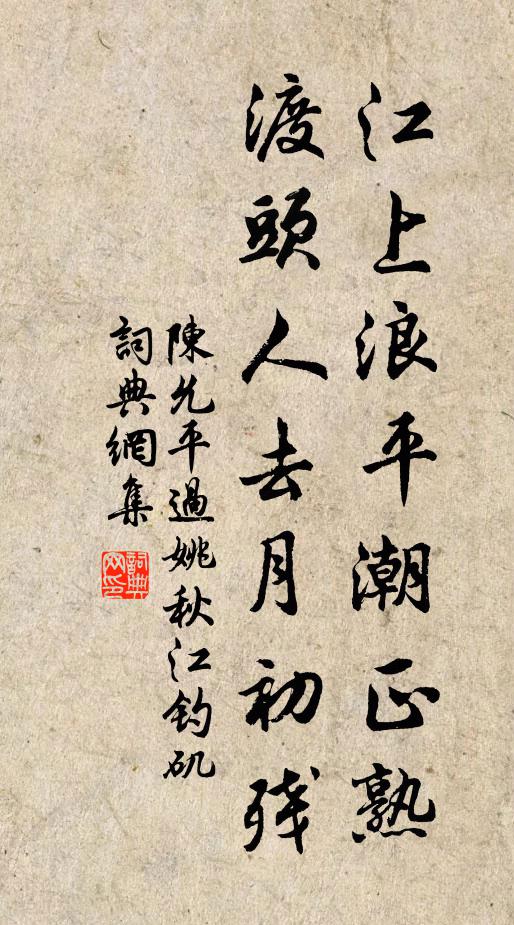 江上浪平潮正熟
渡頭人去月初残
陳允平過姚秋江钓矶
詞典網集
詞典网印